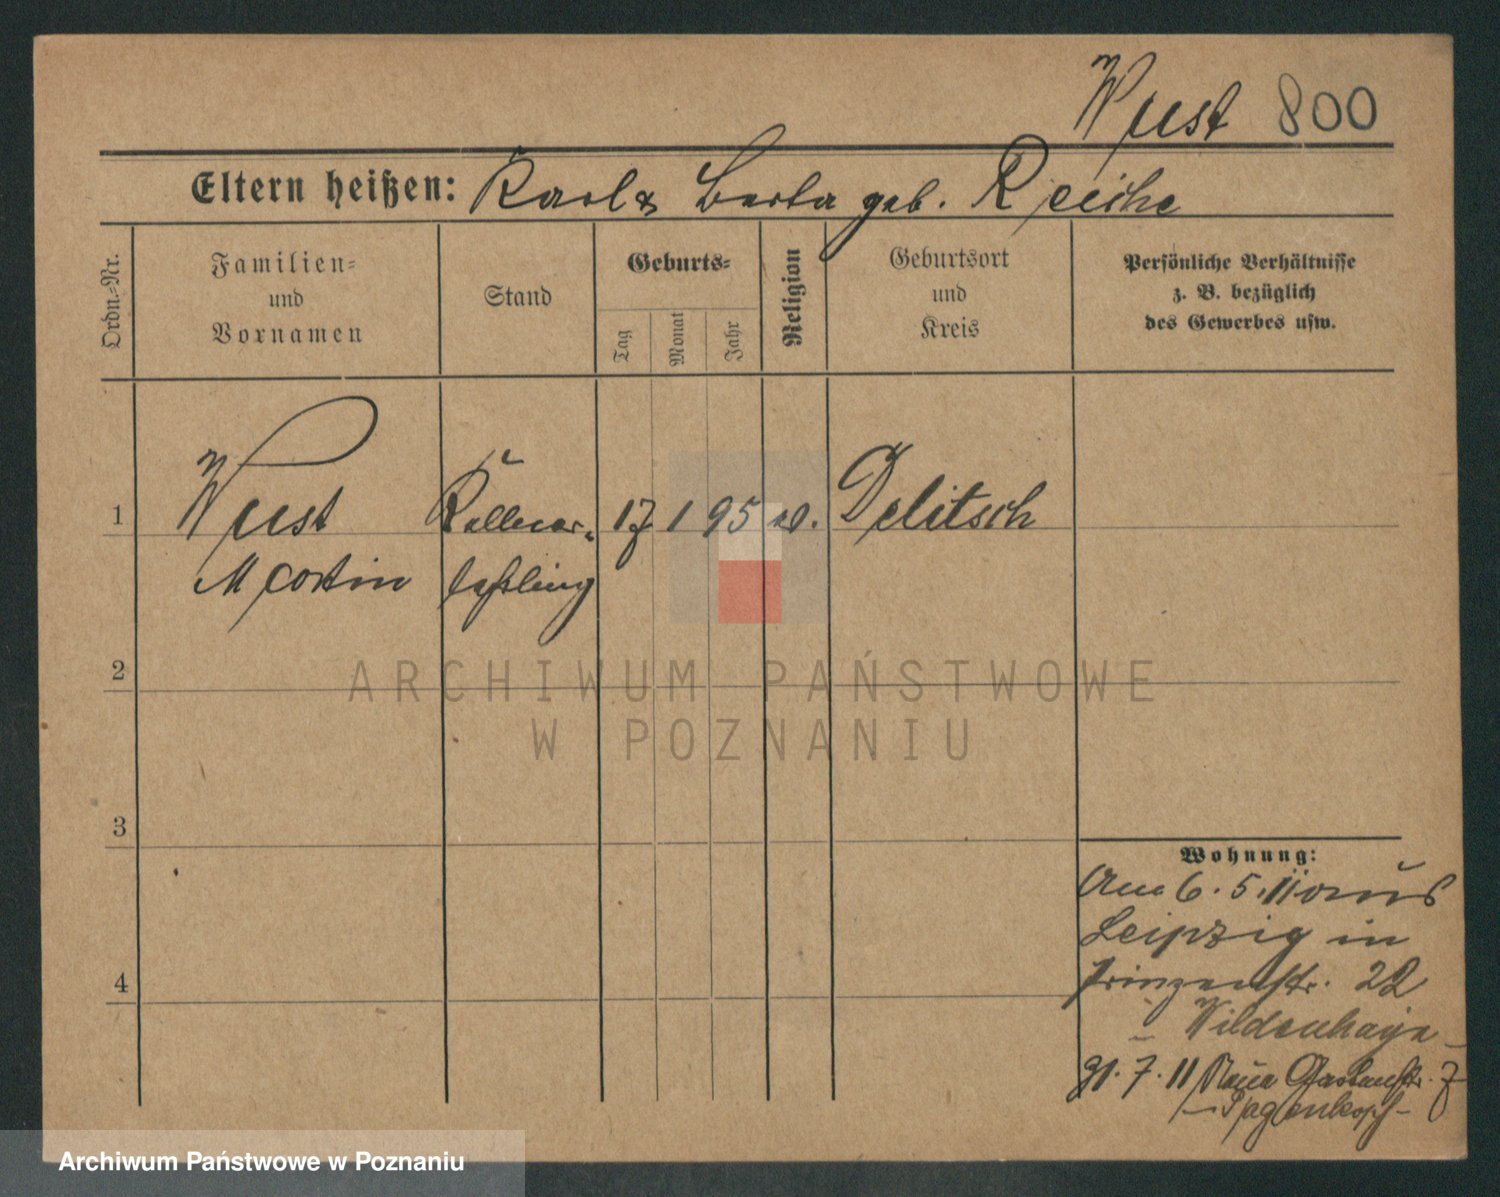 Wust 800
Eltern heißen: Karl & Berta geb. Reiche
Ordn.=Nr.
Familien=
und
Vornamen
Stand
Geburts=
Tag
Monat
Jahr
Religion
Geburtsort
und
Kreis
Persönliche Verhältnisse
z. B. bezüglich
des Gewerbes usw.
1 Wust Kellner= 17 1 95 ev. Delitsch
Martin lehrling
2
3
4
Wohnung:
Am 6. 5. 11 aus
Leipzig in
Prinzenstr. 22
- Wildenhayn -
31. 7. 11 Neue Gartenstr. 7
- Pagenkopf -
ARCHIWUM PAŃSTWOWE
W POZNANIU
Archiwum Państwowe w Poznaniu